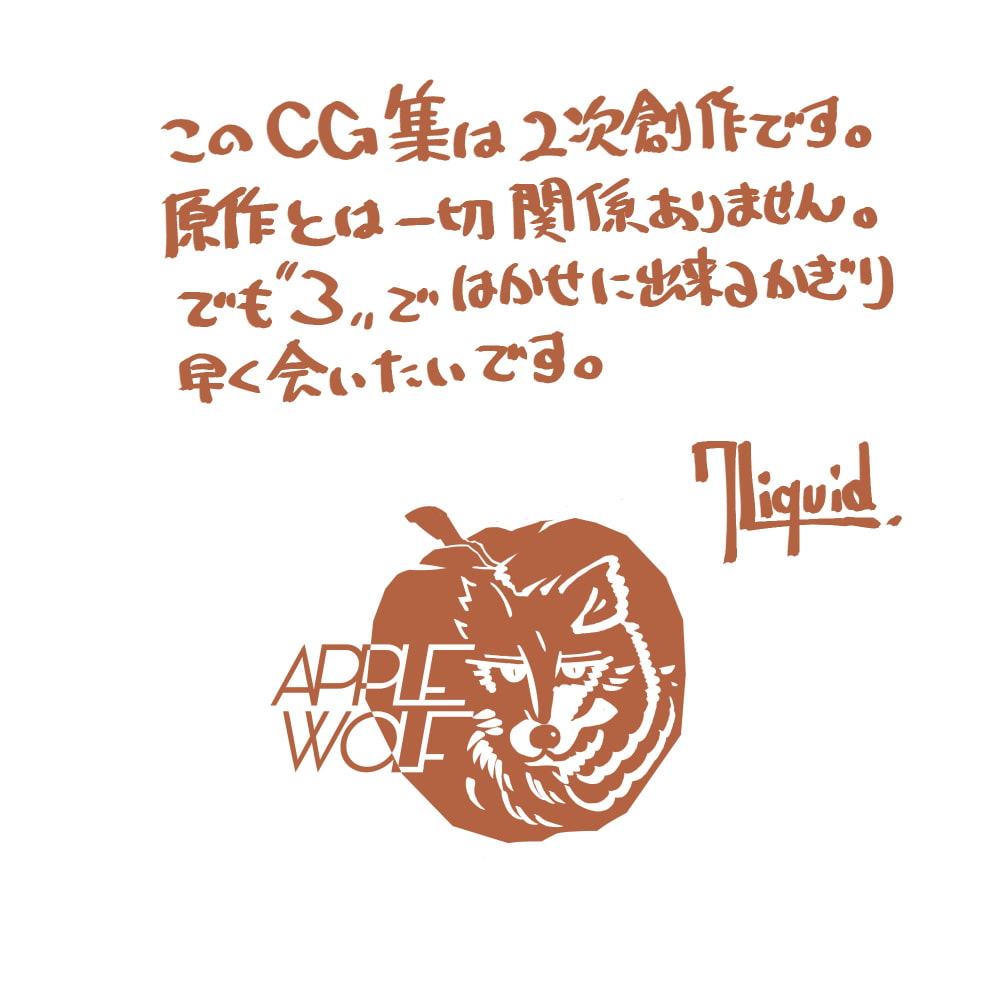 このCG集は2次創作です。
原作とは一切関係ありません。
でも“3„ではかせに出来るかぎり
早く会いたいです。
7Liquid.
APPLE
WOLF